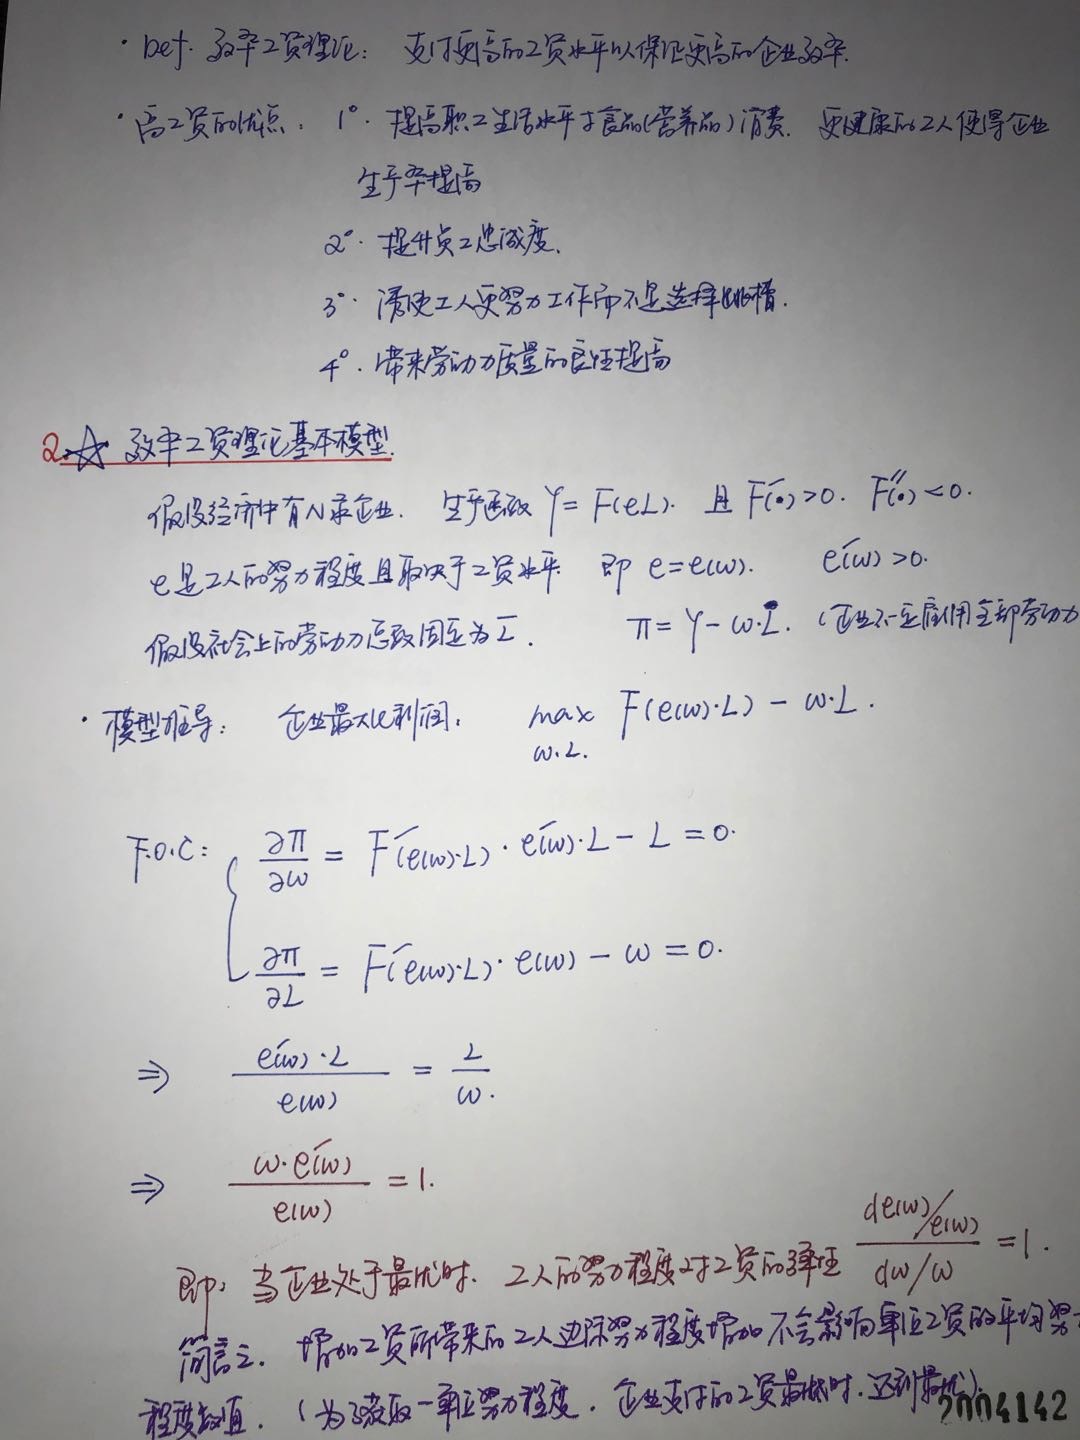 · Def. 效率工资理论： 支付更高的工资水平以保证更高的企业效率.
· 高工资的优点： 1°. 提高职工生活水平于食品(营养品)消费. 更健康的工人使得企业
生产率提高
2°. 提升员工忠诚度.
3°. 诱使工人更努力工作而不是选择跳槽.
4°. 带来劳动力质量的良性提高
2. ☆ 效率工资理论基本模型.
假设经济中有N家企业. 生产函数 Y = F(eL). 且 F'(•)>0. F''(•)<0.
e是工人的努力程度且取决于工资水平. 即 e=e(w). e'(w)>0.
假设社会上的劳动力总数固定为L̄. π = Y - w·L. (企业不一定雇佣全部劳动力
· 模型推导： 企业最大化利润. max F(e(w)·L) - w·L.
w.L.
F.O.C: ∂π/∂w = F'(e(w)·L)·e'(w)·L - L = 0.
∂π/∂L = F'(e(w)·L)·e(w) - w = 0.
⇒ e'(w)·L / e(w) = L/w.
⇒ w·e'(w) / e(w) = 1.
即, 当企业处于最优时. 工人的努力程度对工资的弹性 (de(w)/e(w)) / (dw/w) = 1.
简言之. 增加工资所带来的工人边际努力程度增加 不会影响单位工资的平均努
程度数值. (为了获取一单位努力程度. 企业支付的工资最低时. 达到最优).
2004142